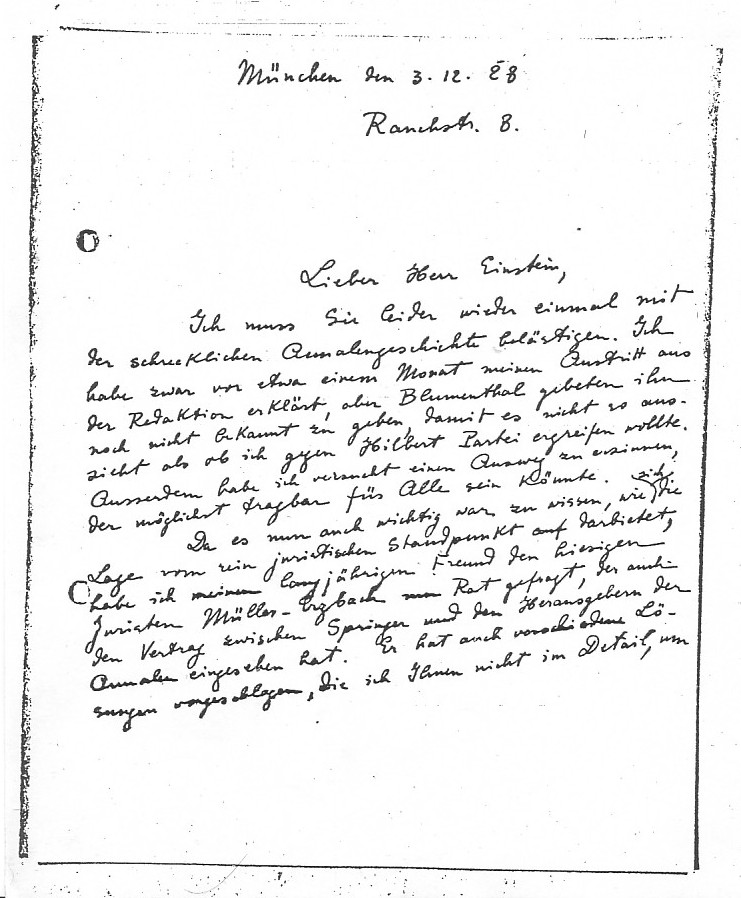 München den 3. 12. 28
Rauchstr. 8.
Lieber Herr Einstein,
Ich muss Sie leider wieder einmal mit
der schrecklichen Annalengeschichte belästigen. Ich
habe zwar vor etwa einem Monat meinen Austritt aus
der Redaktion erklärt, aber Blumenthal gebeten ihn
noch nicht bekannt zu geben, damit es nicht so aus-
sieht als ob ich gegen Hilbert Partei ergreifen wollte.
Ausserdem habe ich versucht einen Ausweg zu ersinnen,
der möglichst tragbar für Alle sein könnte.
Da es nun auch wichtig war zu wissen, wie sich die
Lage vom rein juristischen Standpunkt auf darbietet,
habe ich meinen langjährigen Freund den hiesigen
Juristen Müller-Erzbach um Rat gefragt, der auch
den Vertrag zwischen Springer und den Herausgebern der
Annalen eingesehen hat. Er hat auch verschiedene Lö-
sungen vorgeschlagen, die ich Ihnen nicht im Detail, um